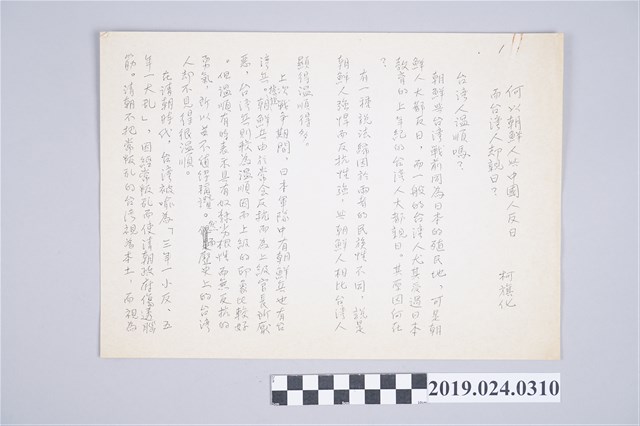 何以朝鮮人與中國人反日
而台灣人却親日?
柯旗化
台灣人溫順嗎?
朝鮮與台灣戰前同為日本的殖民地,可是朝
鮮人大都反日,而一般的台灣人尤其受過日本
教育的上年紀的台灣人大都親日。其原因何在
?
有一種說法歸因於兩者的民族性不同,說是
朝鮮人強悍而反抗性強,與朝鮮人相比台灣人
顯得溫順得多。
上次戰爭期間,日本軍隊中有朝鮮兵也有台
灣兵。朝鮮兵由於常會反抗而為上級官長所厭
惡,台灣兵則較為溫順因而上級的印象比較好
。但溫順有時表示具有奴隸劣根性而無反抗的
勇氣,所以並不值得讚揚。然而歷史上的台灣
人却不見得很溫順。
在清朝時代,台灣被喻為「三年一小反,五
年一大亂」,因經常叛亂而使清朝政府傷透腦
筋。清朝不把常叛亂的台灣視為本土,而視為
2019.024.0310